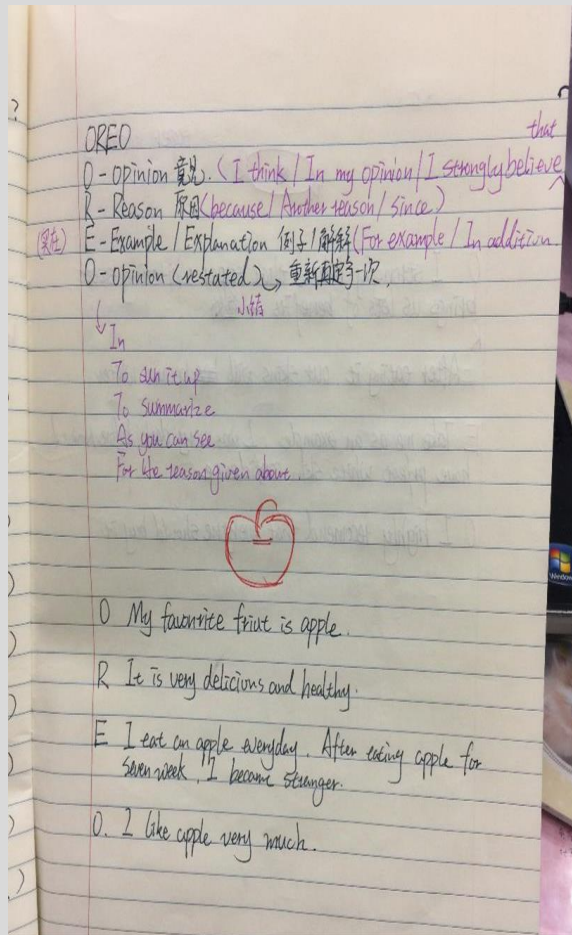 that
OREO
O - opinion 意见. (I think / In my opinion / I strongly believe
R - Reason 原因 (because / Another reason / since)
E - Example / Explanation 例子 / 解释 (For example / In addition
O - opinion (restated) 重新 一次.
小结
In
To sun it up
To summarize
As you can see
For the reason given about.
O My favourite friut is apple.
R It is very delicious and healthy.
E I eat an apple everyday. After eating apple for
seven week, I became stranger.
O. I like apple very much.
Windows